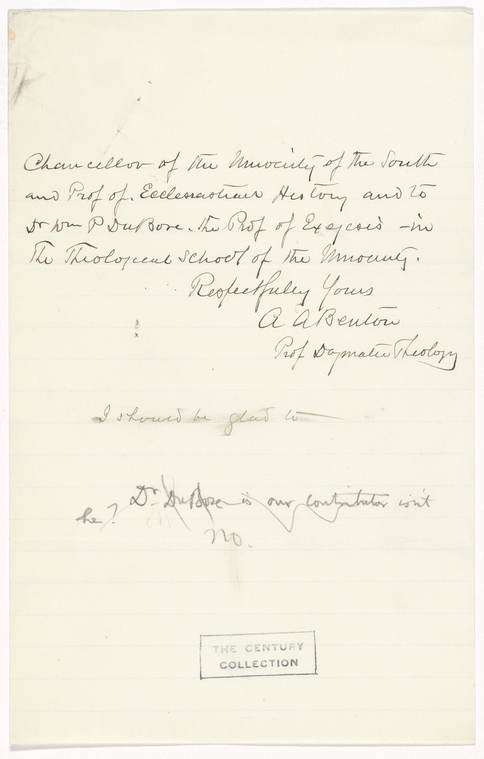 Chancellor of the University of the South
and Prof of. Ecclesiastical History and to
Dr Wm P DuBose. the Prof of Exegesis - in
the Theological School of the University.
Respectfully Yours
A A Benton
Prof Dogmatic Theology
I should be glad to
Dr. DuBose is our contributor isn't
he?
No.
THE CENTURY
COLLECTION